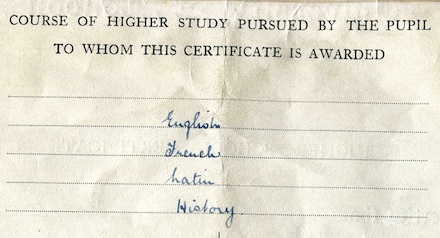 COURSE OF HIGHER STUDY PURSUED BY THE PUPIL
TO WHOM THIS CERTIFICATE IS AWARDED
English
French
Latin
History